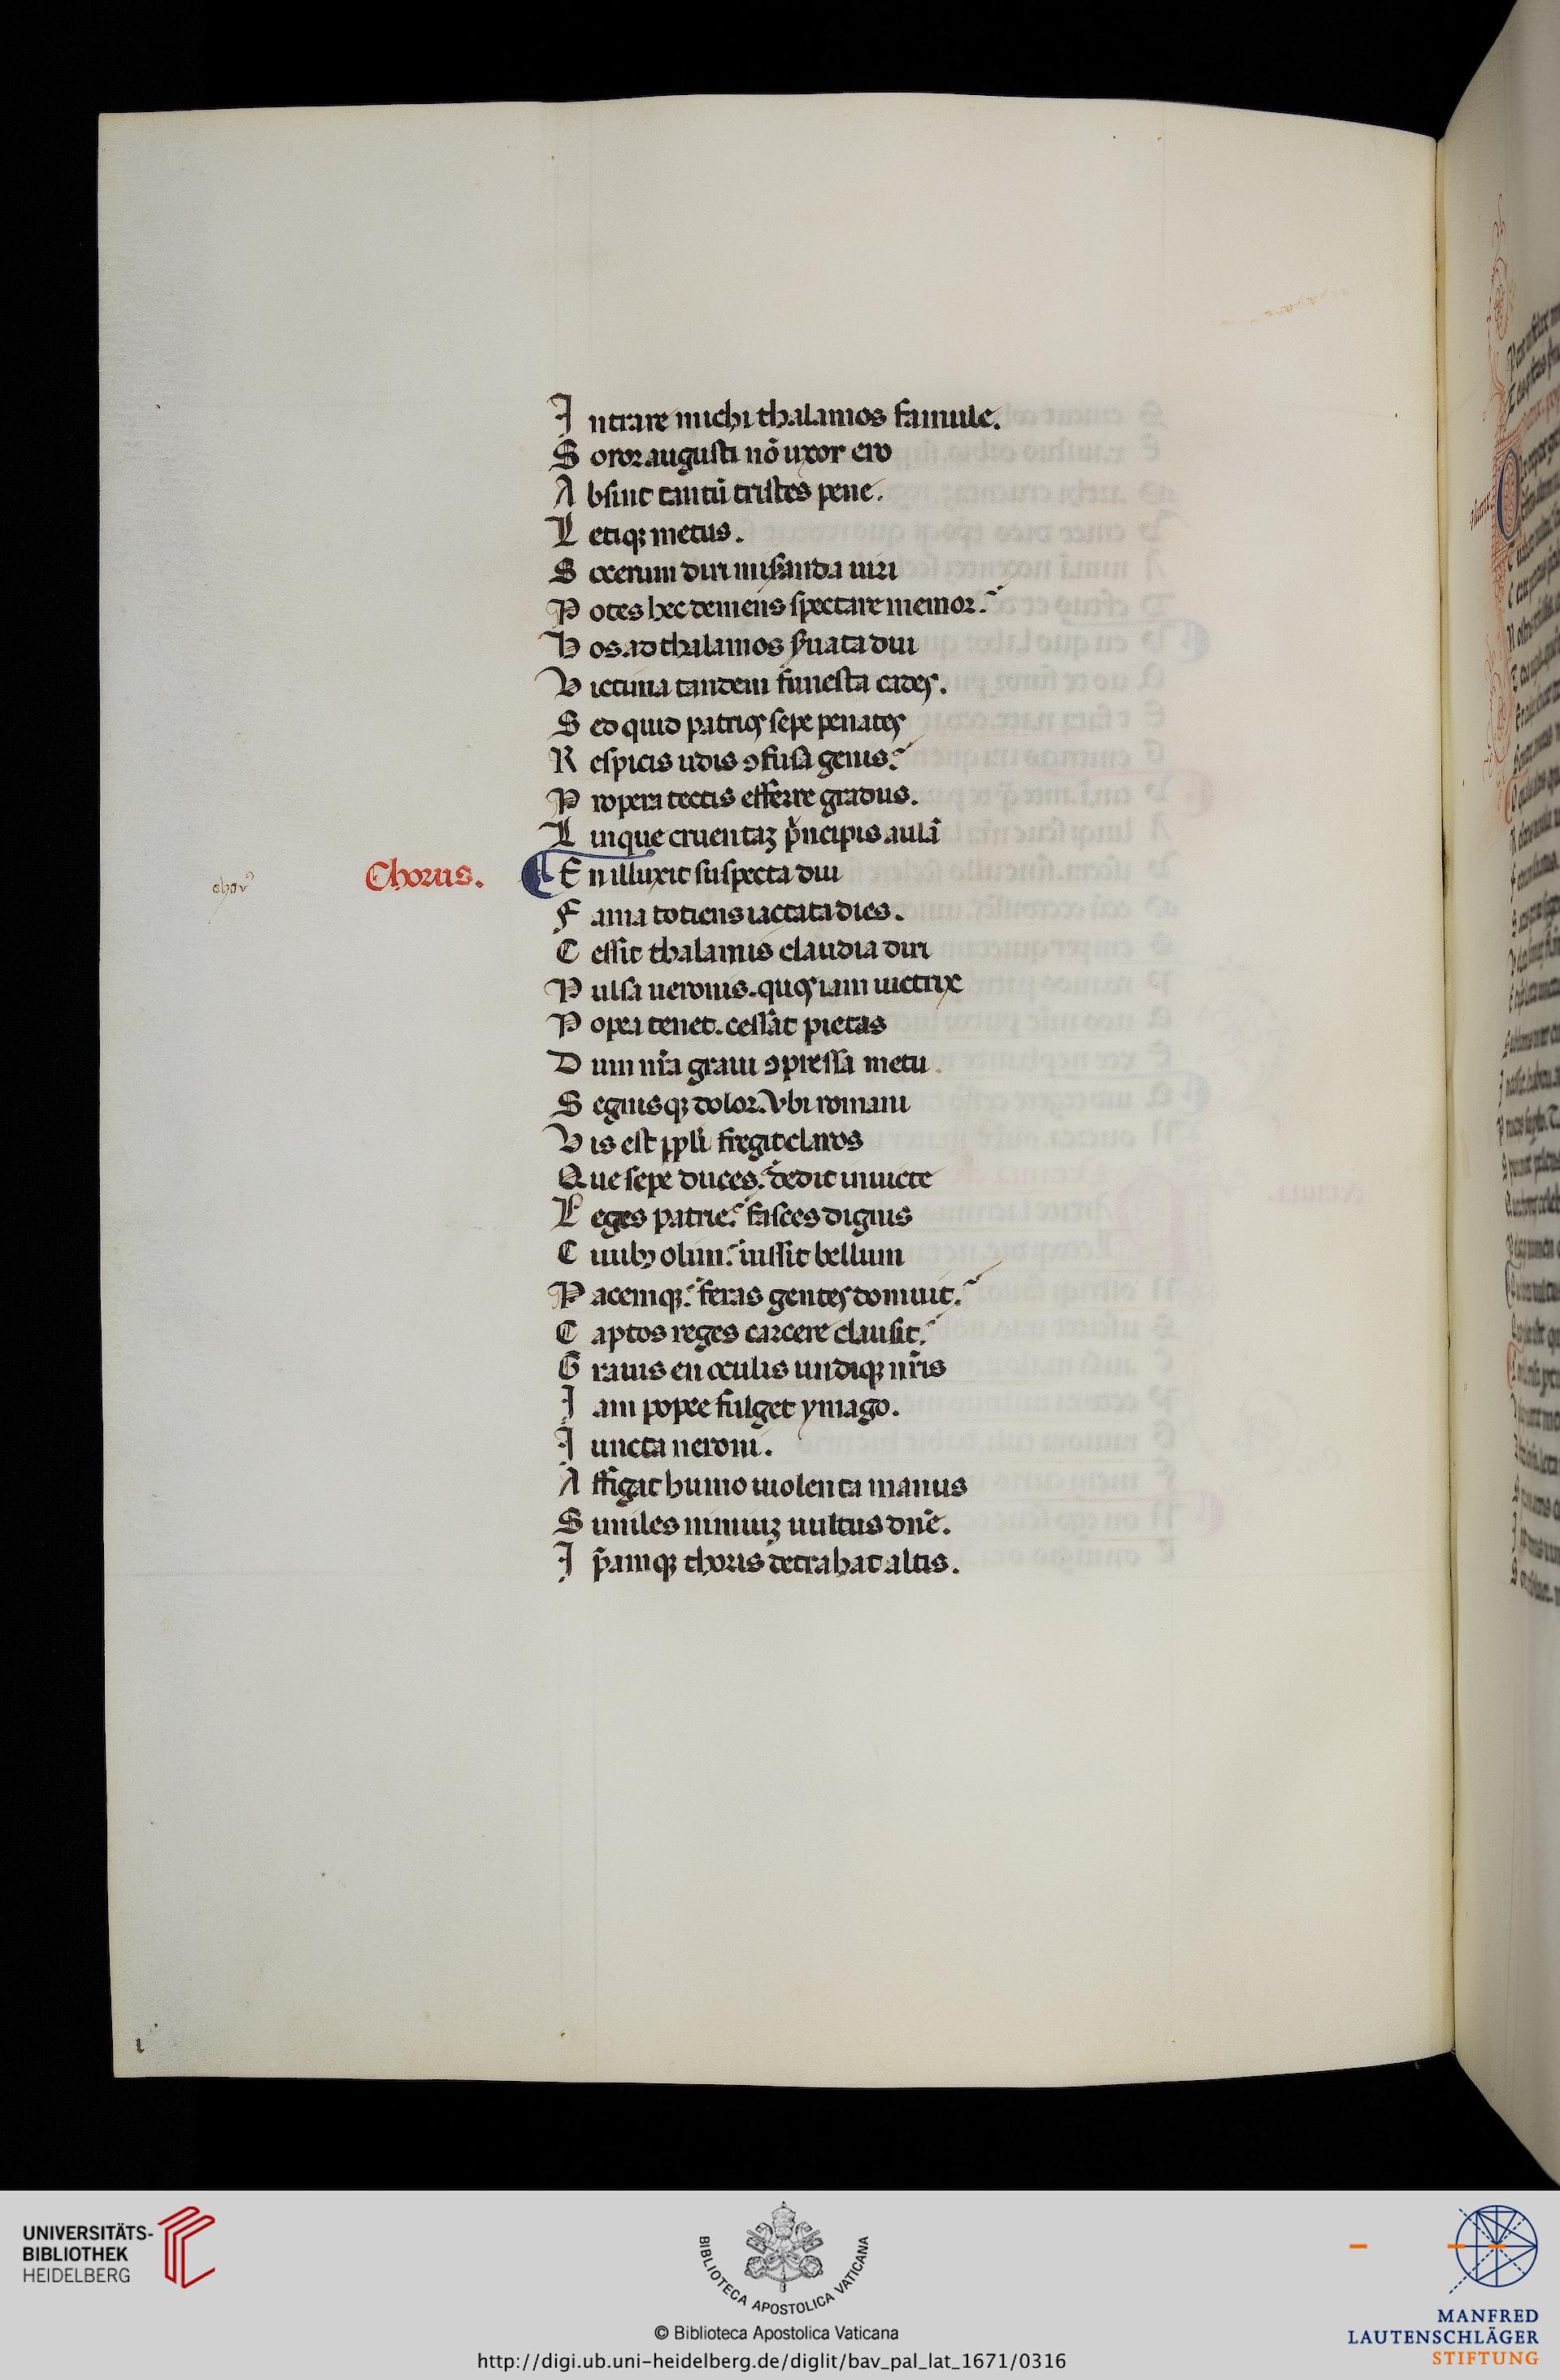 I ntrare michi thalamos famule.
S oror augusti nō uxor ero
A bsint tantū tristes pene.
L etiqꝫ metus.
S celerum diri miẜanda uiri
P otes hec demens spectare memor.
H os ad thalamos ẜuata diu
V ictima tandem funesta cades.
S ed quid patrios sepe penates
R espicis udis ꝯfusa genis.
P ropera tectis efferre gradus.
L inque cruentaꝫ pⁱncipis aulā
Chorus. E n illuxit suspecta diu
chorꝰ
F ama totiens iactata dies.
C essit thalamis claudia diri
P ulsa neronis. quos iam uictrix
P opea tenet. cessat pietas
D um nr̄a graui ꝯpressa metu
S egnisqꝫ dolor. Vbi romani
V is est ppl̄i fregit claros
Q ue sepe duces. dedit inuicte
L eges patrie. fasces dignis
C iuibꝫ olim. iussit bellum
P acemqꝫ. feras gentes domuit.
C aptos reges carcere clausit.
G rauis en oculis undiqꝫ nr̄is
I am popee fulget ymago.
I uncta neroni.
A ffigat humo uiolenta manus
S imiles nimiuꝫ uultus dn̄e.
I p̄amqꝫ thoris detrahat altis.
UNIVERSITÄTS-
BIBLIOTHEK
HEIDELBERG
BIBLIOTECA APOSTOLICA VATICANA
© Biblioteca Apostolica Vaticana
http://digi.ub.uni-heidelberg.de/diglit/bav_pal_lat_1671/0316
MANFRED
LAUTENSCHLÄGER
STIFTUNG